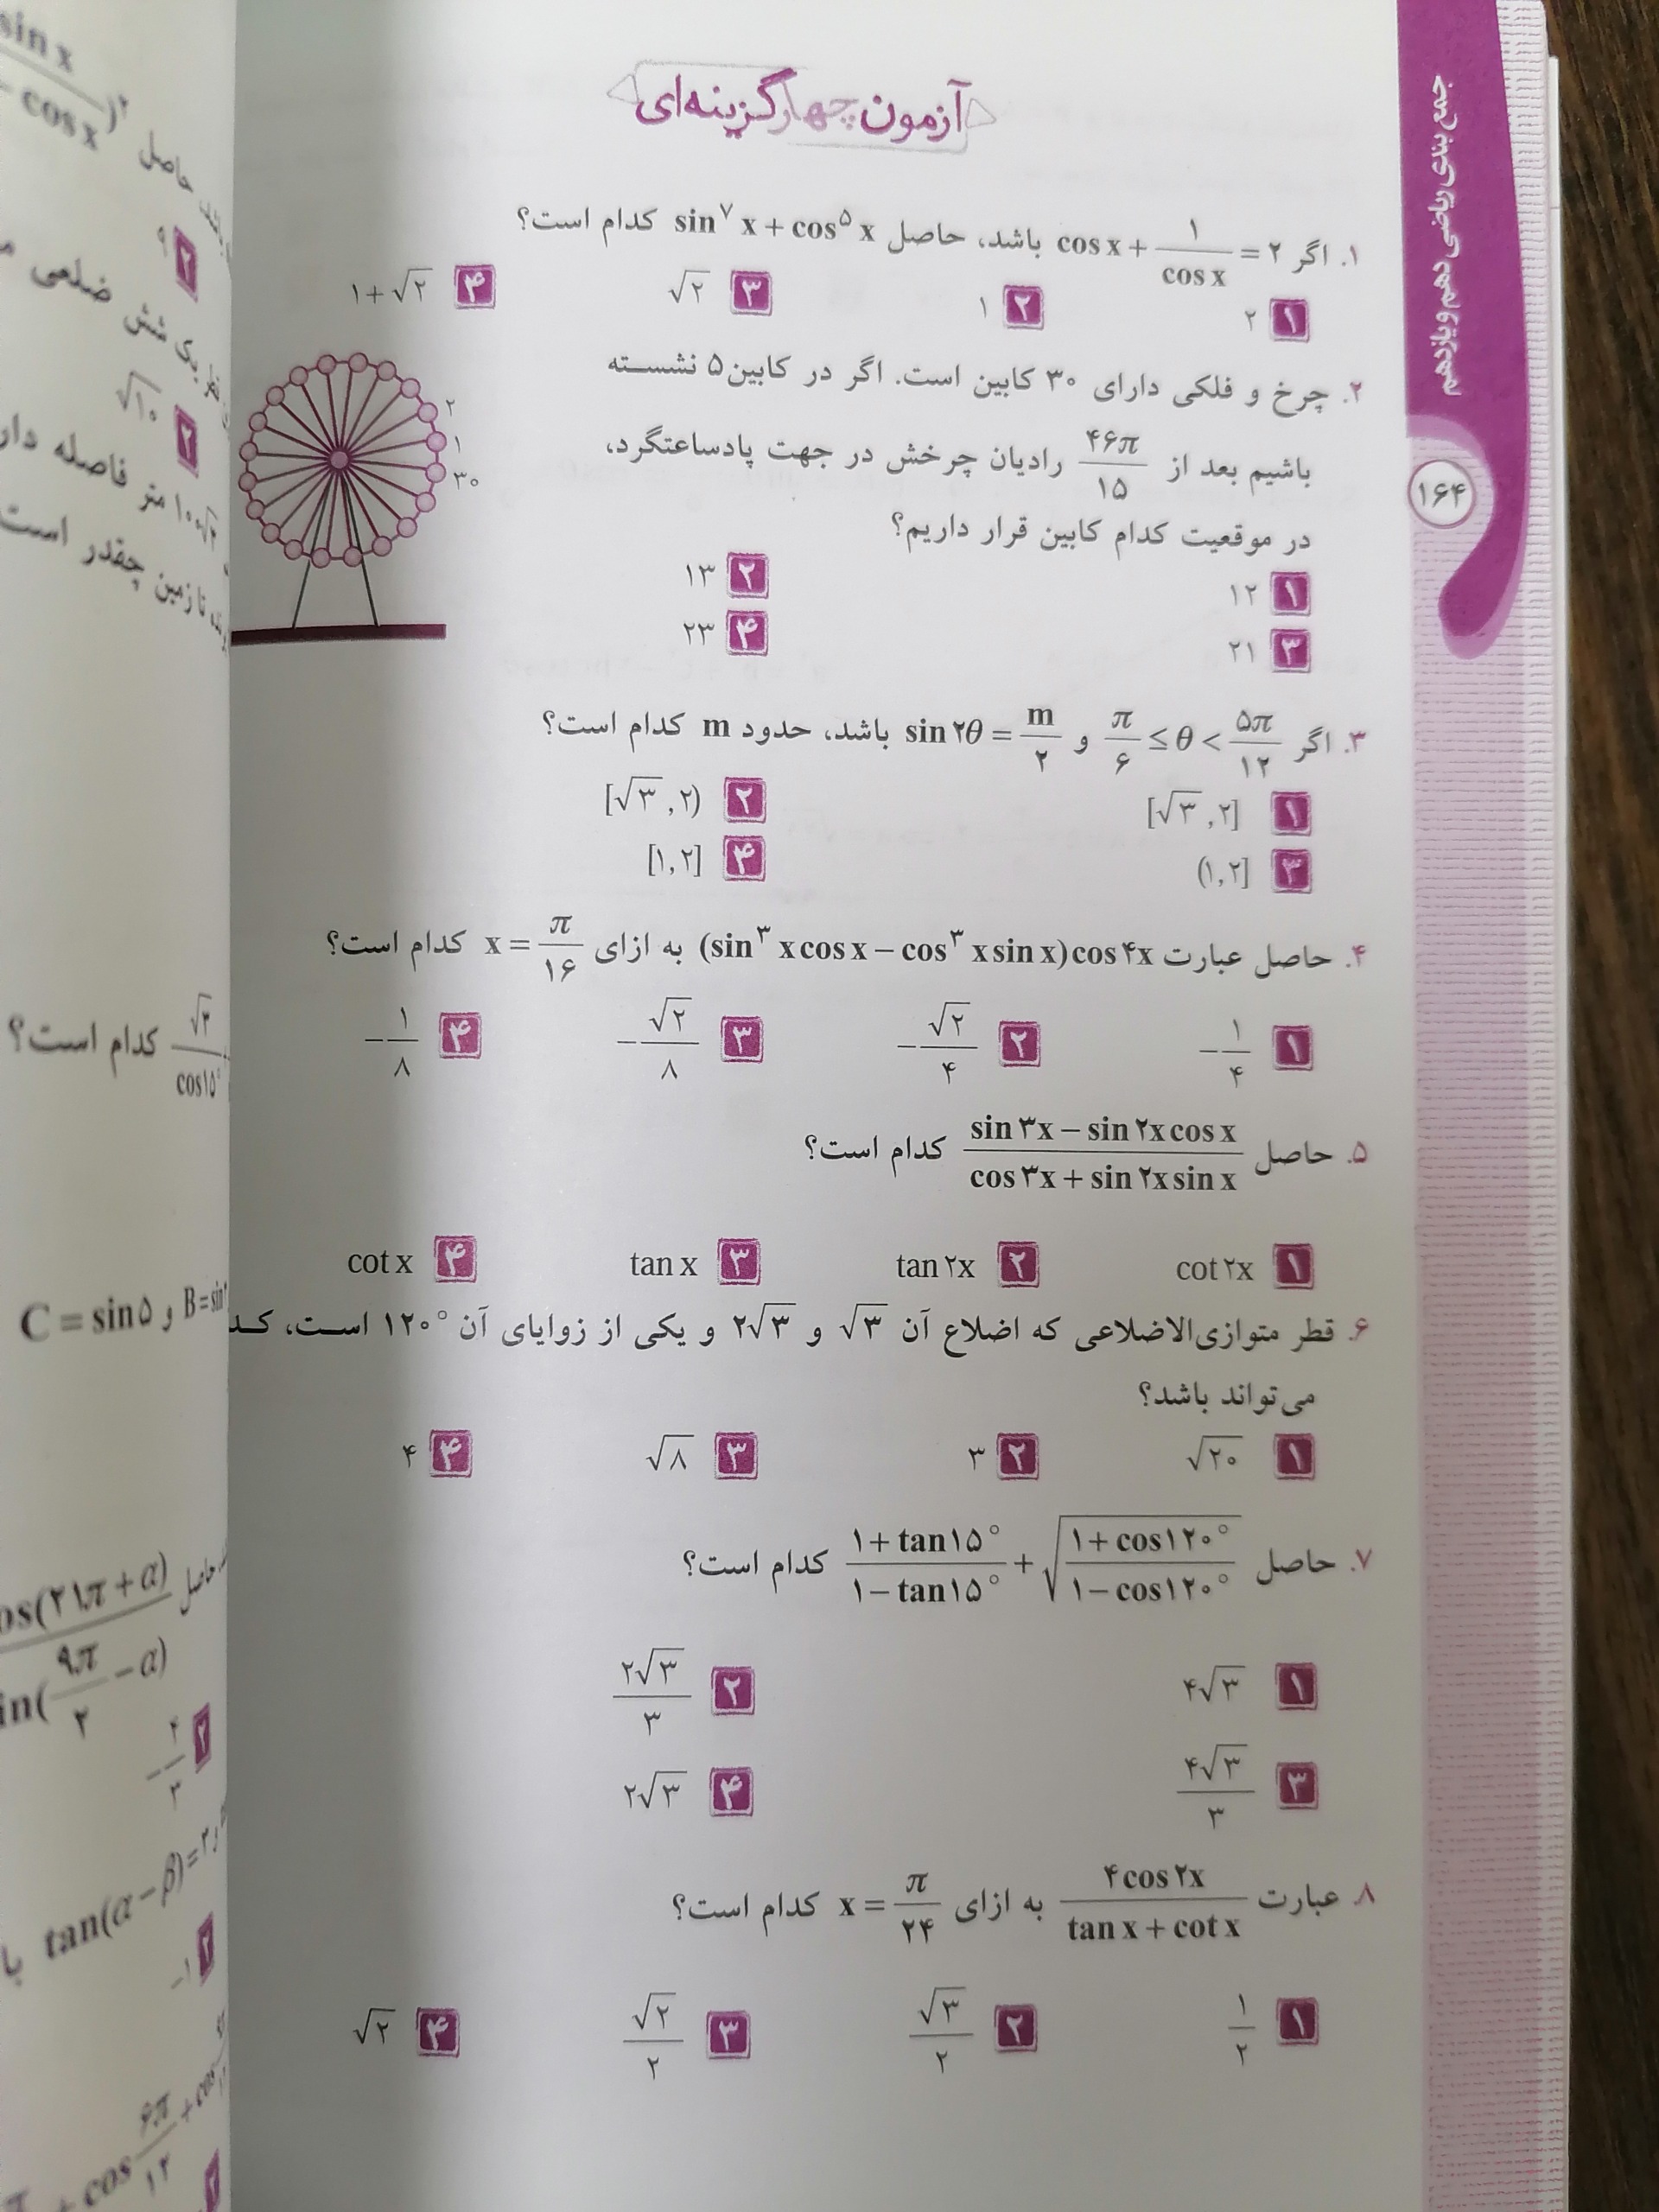 آزمون چهارگزینه‌ای
جمع بندی ریاضی دهم و یازدهم
۱۶۴
۱. اگر cos x + ۱/cos x = ۲ باشد، حاصل sin⁷ x + cos⁵ x کدام است؟
۱ ۲ ۲ ۱ ۳ √۲ ۴ ۱+√۲
۲. چرخ و فلکی دارای ۳۰ کابین است. اگر در کابین ۵ نشسته
باشیم بعد از ۴۶π/۱۵ رادیان چرخش در جهت پادساعتگرد،
در موقعیت کدام کابین قرار داریم؟
۱ ۱۲ ۲ ۱۳
۳ ۲۱ ۴ ۲۳
۲
۱
۳۰
۳. اگر π/۶ ≤ θ < ۵π/۱۲ و sin ۲θ = m/۲ باشد، حدود m کدام است؟
۱ [√۳, ۲] ۲ [√۳, ۲)
۳ (۱, ۲] ۴ [۱, ۲]
۴. حاصل عبارت (sin³ x cos x − cos³ x sin x) cos ۴x به ازای x = π/۱۶ کدام است؟
۱ −۱/۴ ۲ −√۲/۴ ۳ −√۲/۸ ۴ −۱/۸
۵. حاصل (sin ۳x − sin ۲x cos x)/(cos ۳x + sin ۲x sin x) کدام است؟
۱ cot ۲x ۲ tan ۲x ۳ tan x ۴ cot x
۶. قطر متوازی‌الاضلاعی که اضلاع آن √۳ و ۲√۳ و یکی از زوایای آن ۱۲۰° است، کد
می‌تواند باشد؟
۱ √۲۰ ۲ ۳ ۳ √۸ ۴ ۴
۷. حاصل (۱ + tan ۱۵°)/(۱ − tan ۱۵°) + √((۱ + cos ۱۲۰°)/(۱ − cos ۱۲۰°)) کدام است؟
۱ ۴√۳ ۲ ۲√۳/۳
۳ ۴√۳/۳ ۴ ۲√۳
۸. عبارت ۴ cos ۲x/(tan x + cot x) به ازای x = π/۲۴ کدام است؟
۱ ۱/۲ ۲ √۳/۲ ۳ √۲/۲ ۴ √۲
sin x
cos x
حاصل
۲ ۹
شش ضلعی
۲ √۱۰
متر فاصله دار
تا زمین چقدر است
√۳/cos ۱۵° کدام است؟
و C = sin ۵
os(۲۱π + α)
in(۹π/۲ − α)
حاصل
۲ −۴/۳
tan(α − β) = ۲
۲ −۱
+ cos ۶π/۱۲ + cos